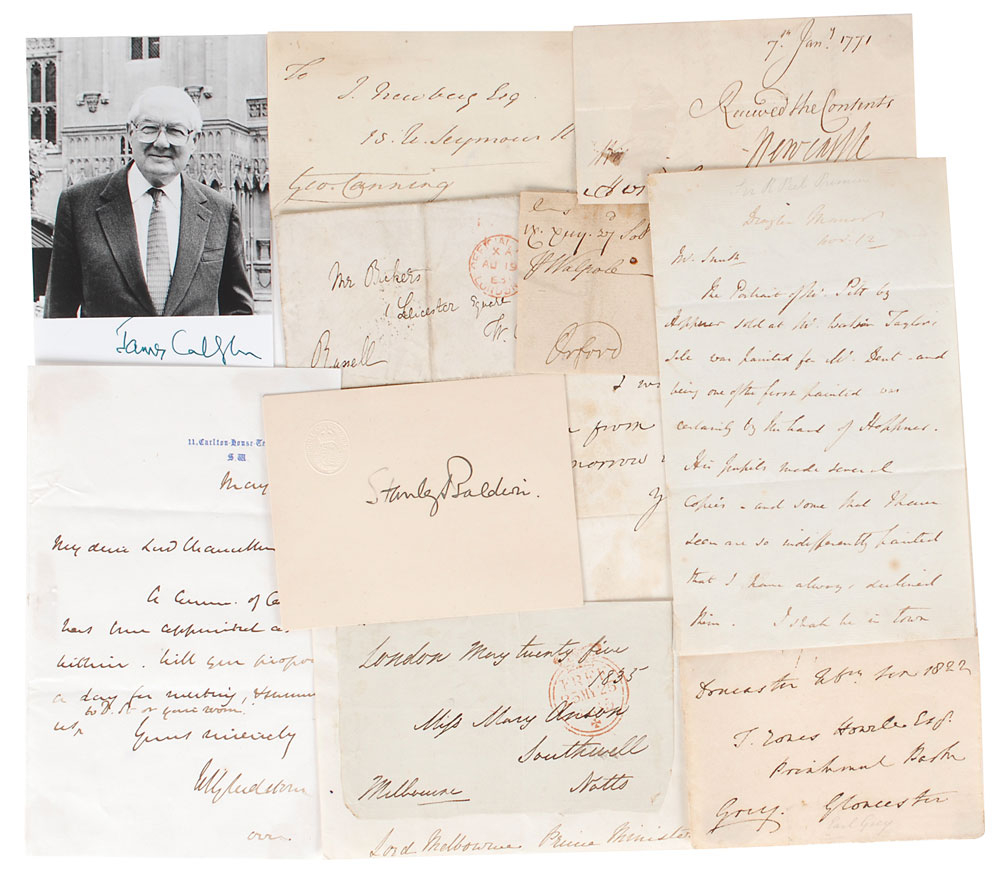 James Callghn
To
J. Newberg Esq
15. U. Seymour
Geo. Canning
7th Jany 1771
Received the Contents
Newcastle
Mr Bickers
Leicester Square
W.
Russell
XA
AU 19
63
LONDON
Walpole
Orford
from
morrow
11, Carlton-House-Te
S.W.
May
My dear Lord Chancellor
A Comm. of Ca
has been appointed as
within. Will you propose
a day for meeting,
to D. St or your room.
Yours sincerely
WGladstone
over.
Stanley Baldwin.
Sir R Peel Premier
Drayton Manor
Nov. 12
Mr. Smith
The Portrait of Mr. Pitt by
Hoppner sold at Mr. Watson Taylor's
Sale was painted for Mr. Dent - and
being one of the first painted was
certainly by the hand of Hoppner.
His pupils made several
copies - and some that I have
seen are so indifferently painted
that I have always declined
them. I shall be in town
London May twenty five
1835
FREE
25MY25
Miss Mary Anson
Southwell
Melbourne Notts
Lord Melbourne Prime Minister
Doncaster 1822
T. Jones Howell Esq.
Grey. Gloucester
Earl Grey